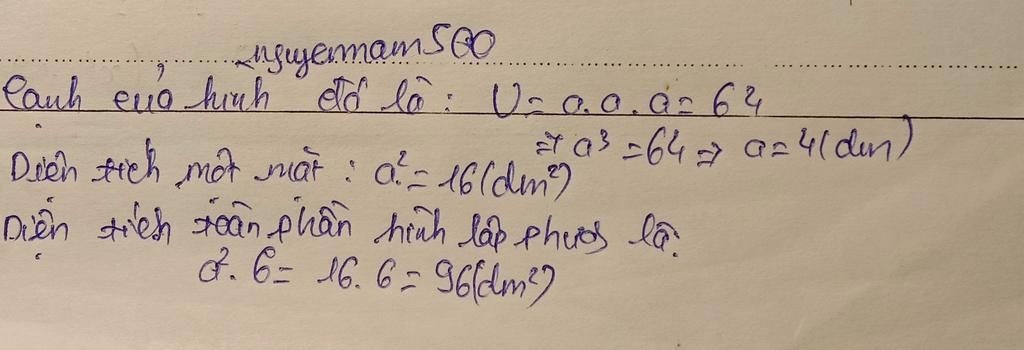 nguyennam500
Cạnh của hình đó là: V = a.a.a = 64
=> a³ = 64 => a = 4(dm)
Diện tích một mặt: a² = 16(dm²)
Diện tích toàn phần hình lập phươg là:
a². 6 = 16. 6 = 96(dm²)